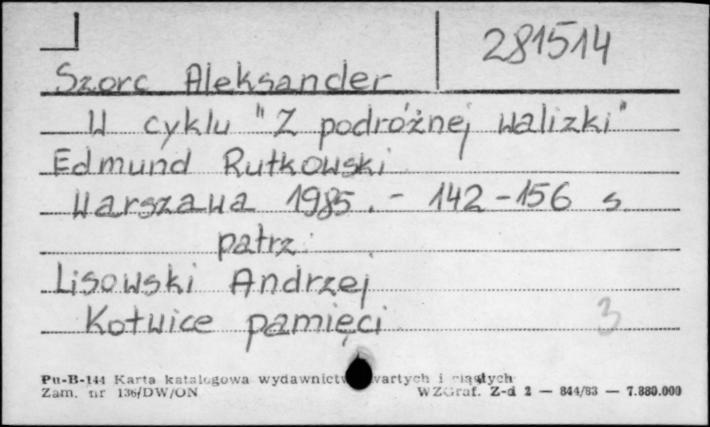 281514
Szorc Aleksander
W cyklu "Z podróżnej walizki"
Edmund Rutkowski
Warszawa 1985 . - 142-156 s
patrz:
Lisowski Andrzej
Kotwice pamięci 3
Pu-B-144 Karta katalogowa wydawnictw zwartych i ciągłych
Zam. nr 136/DW/ON WZGraf. Z-d 2 — 844/83 — 7.880.000